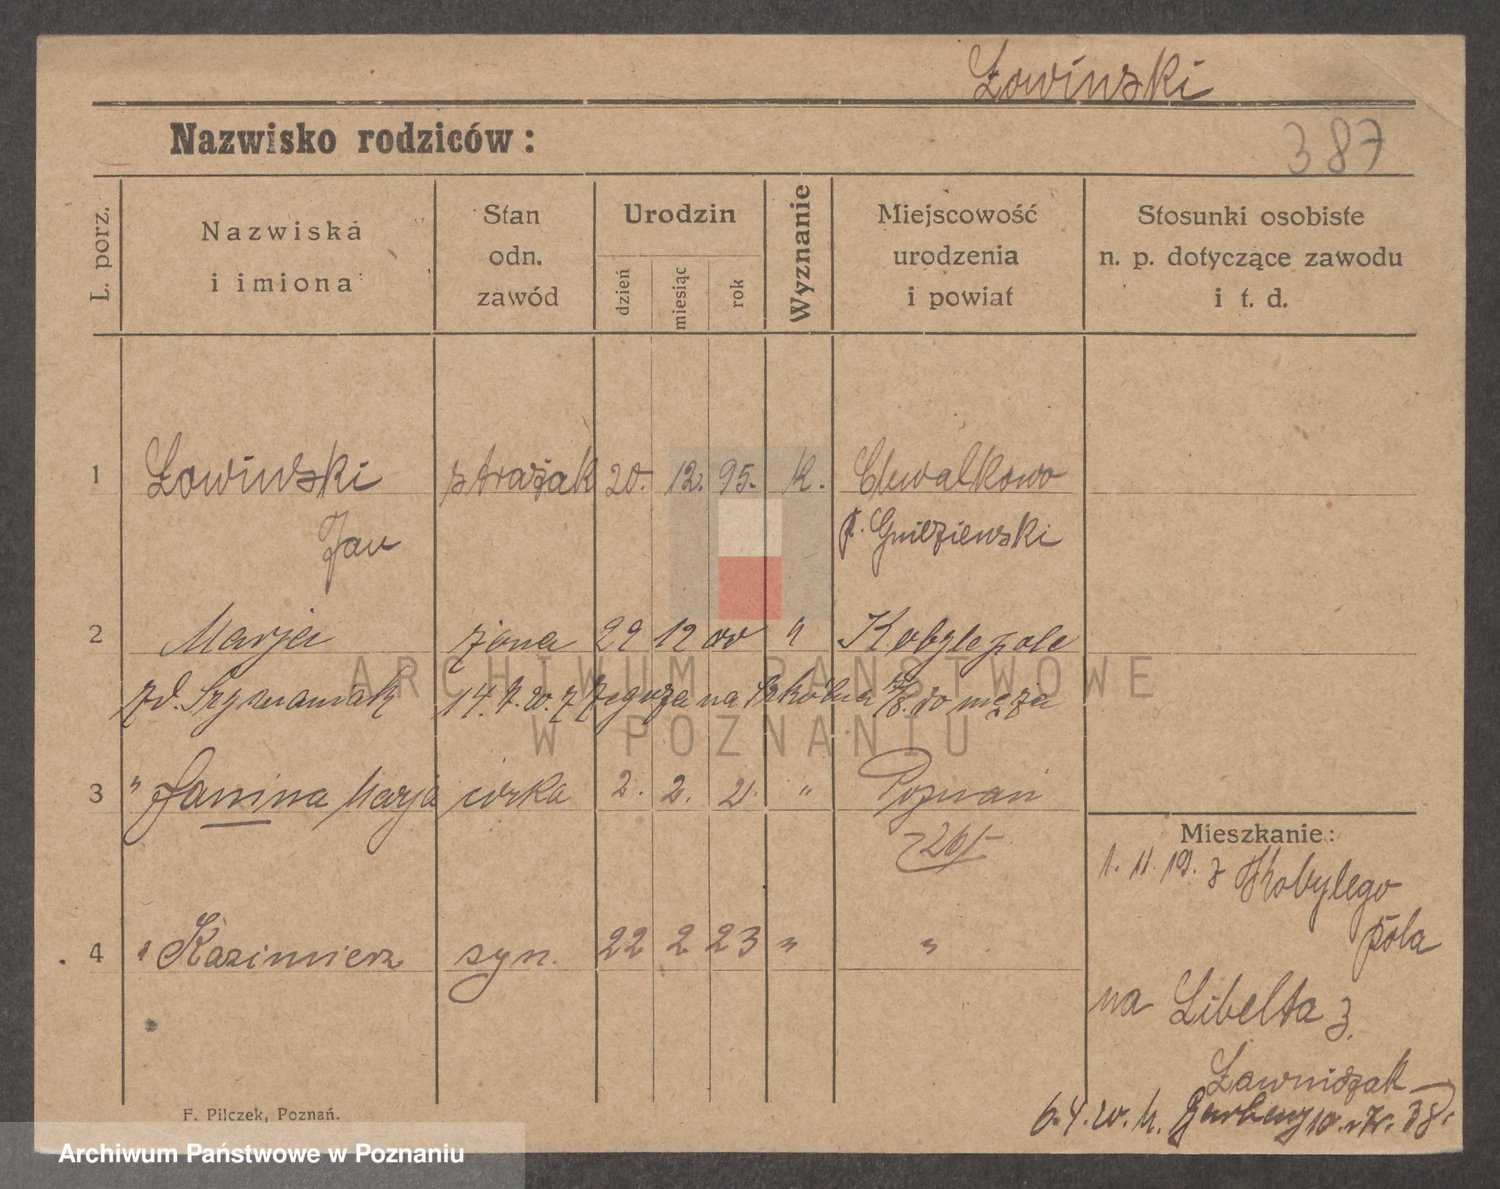 Łowiński
Nazwisko rodziców:
387
L. porz.
Nazwiska
i imiona
Stan
odn.
zawód
Urodzin
dzień
miesiąc
rok
Wyznanie
Miejscowość
urodzenia
i powiat
Stosunki osobiste
n. p. dotyczące zawodu
i t. d.
1 Łowiński strażak 20. 12. 95. K. Chwałkowo
Jan p. Gnieźieński
2 Marja żona 29 12 00 " Kobylepole
zd. Szymaniak 14. 7. 20. z Zegrza na Szkólna do męża
3 " Janina Marja córka 2. 2. 21 " Poznań
261
4 " Kazimierz syn. 22 2 23 " "
Mieszkanie:
1. 11. 19. z Kobylego
pola
na Libelta 3.
Ławniczak
6.4.20. u. Garbary
F. Pilczek, Poznań.
ARCHIWUM PAŃSTWOWE
W POZNANIU
Archiwum Państwowe w Poznaniu